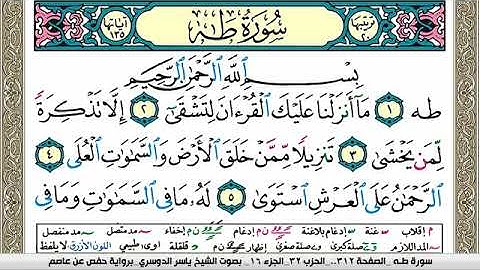 ترتيبها ٢٠ سُورَةُ طه آياتها ١٣٥
بِسْمِ اللَّهِ الرَّحْمَٰنِ الرَّحِيمِ
طه ١ مَا أَنزَلْنَا عَلَيْكَ الْقُرْءَانَ لِتَشْقَىٰ ٢ إِلَّا تَذْكِرَةً
لِّمَن يَخْشَىٰ ٣ تَنزِيلًا مِّمَّنْ خَلَقَ الْأَرْضَ وَالسَّمَٰوَٰتِ الْعُلَى ٤
الرَّحْمَٰنُ عَلَى الْعَرْشِ اسْتَوَىٰ ٥ لَهُ مَا فِي السَّمَٰوَٰتِ وَمَا فِي
م إقلاب غنة إدغام بلاغنة ن م إدغام ن م إخفاء مد متصل مد منفصل
المد اللازم صلة كبرى صلة صغرى إظهار ن م قلقلة اوى طبيعي اللون الأزرق لا يلفظ
سورة طـه _ الصفحة ٣١٢_ الحزب ٣٢_ الجزء ١٦_ بصوت الشيخ ياسر الدوسري_ برواية حفص عن عاصم